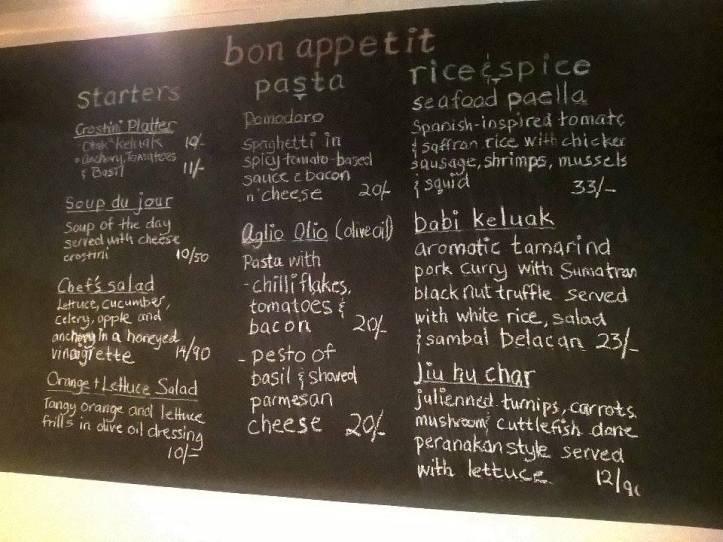 bon appetit
Starters
Crostini Platter
Otak Keluak 10/-
• Anchovy, Tomatoes
& Basil 11/-
Soup du jour
Soup of the day
served with cheese
crostini 10/50
Chef's salad
Lettuce, cucumber,
celery, apple and
anchovy in a honeyed
vinaigrette 14/90
Orange + Lettuce Salad
Tangy orange and lettuce
frills in olive oil dressing
10/-
pasta
Pomodoro
Spaghetti in
spicy tomato-based
sauce c bacon
n' cheese 20/-
Aglio Olio (olive oil)
Pasta with
- chilli flakes,
tomatoes &
bacon 20/-
- pesto of
basil & shaved
parmesan
cheese 20/-
rice & spice
seafood paella
Spanish-inspired tomato
& saffron rice with chicken
sausage, shrimps, mussels
& squid 33/-
babi keluak
aromatic tamarind
pork curry with Sumatran
black nut truffle served
with white rice, salad
& sambal belacan 23/-
Jiu hu char
julienned turnips, carrots
mushroom, cuttlefish done
peranakan style served
with lettuce 12/90